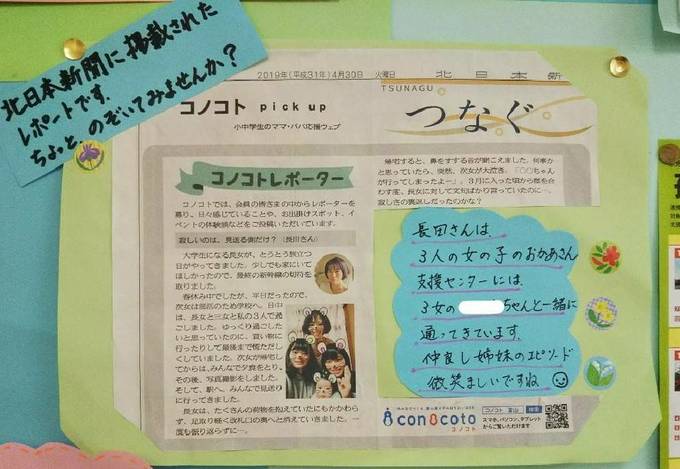 北日本新聞に掲載された
レポートです。
ちょっと、のぞいてみませんか？
2019年(平成31年)4月30日 火曜日 北日本新
コノコト pick up
小中学生のママ・パパ応援ウェブ
TSUNAGU
つなぐ
コノコトレポーター
コノコトでは、会員の皆さまの中からレポーターを
募り、日々感じていることや、お出掛けスポット、イ
ベントの体験談などをご投稿いただいています。
寂しいのは、見送る側だけ？（長田さん）
大学生になる長女が、とうとう旅立つ
日がやってきました。少しでも家にいて
ほしかったので、最終の新幹線の切符を
取りました。
春休み中でしたが、平日だったので、
次女は部活のため学校へ。日中
は、長女と三女と私の３人で過
ごしました。ゆっくり過ごした
いと思っていたのに、買い物に
行ったりして最後まで慌ただし
くしていました。次女が帰宅し
てからは、みんなで夕食をとり、
その後、写真撮影をしました。
そして、駅へ。みんなで見送り
に行ってきました。
長女は、たくさんの荷物を抱えていたにもかかわら
ず、足取り軽く改札口の奥へと消えていきました。一
度も振り返らずに…。
帰宅すると、鼻をすする音が聞こえました。何事か
と思っていたら、突然、次女が大泣き。「○○ちゃん
が行ってしまったよー」。３月に入った頃から顔を合
わす度、長女に対して文句ばかり言っていたのに…。
寂しさの裏返しだったのかな？
長田さんは、
３人の女の子のおかあさん
支援センターには、
３女の ちゃんと一緒に
通ってきています。
仲良し姉妹のエピソード
微笑ましいですね
conocoto
コノコト
コノコト 富山 検索
スマホ、パソコン、タブレット
からご覧いただけます